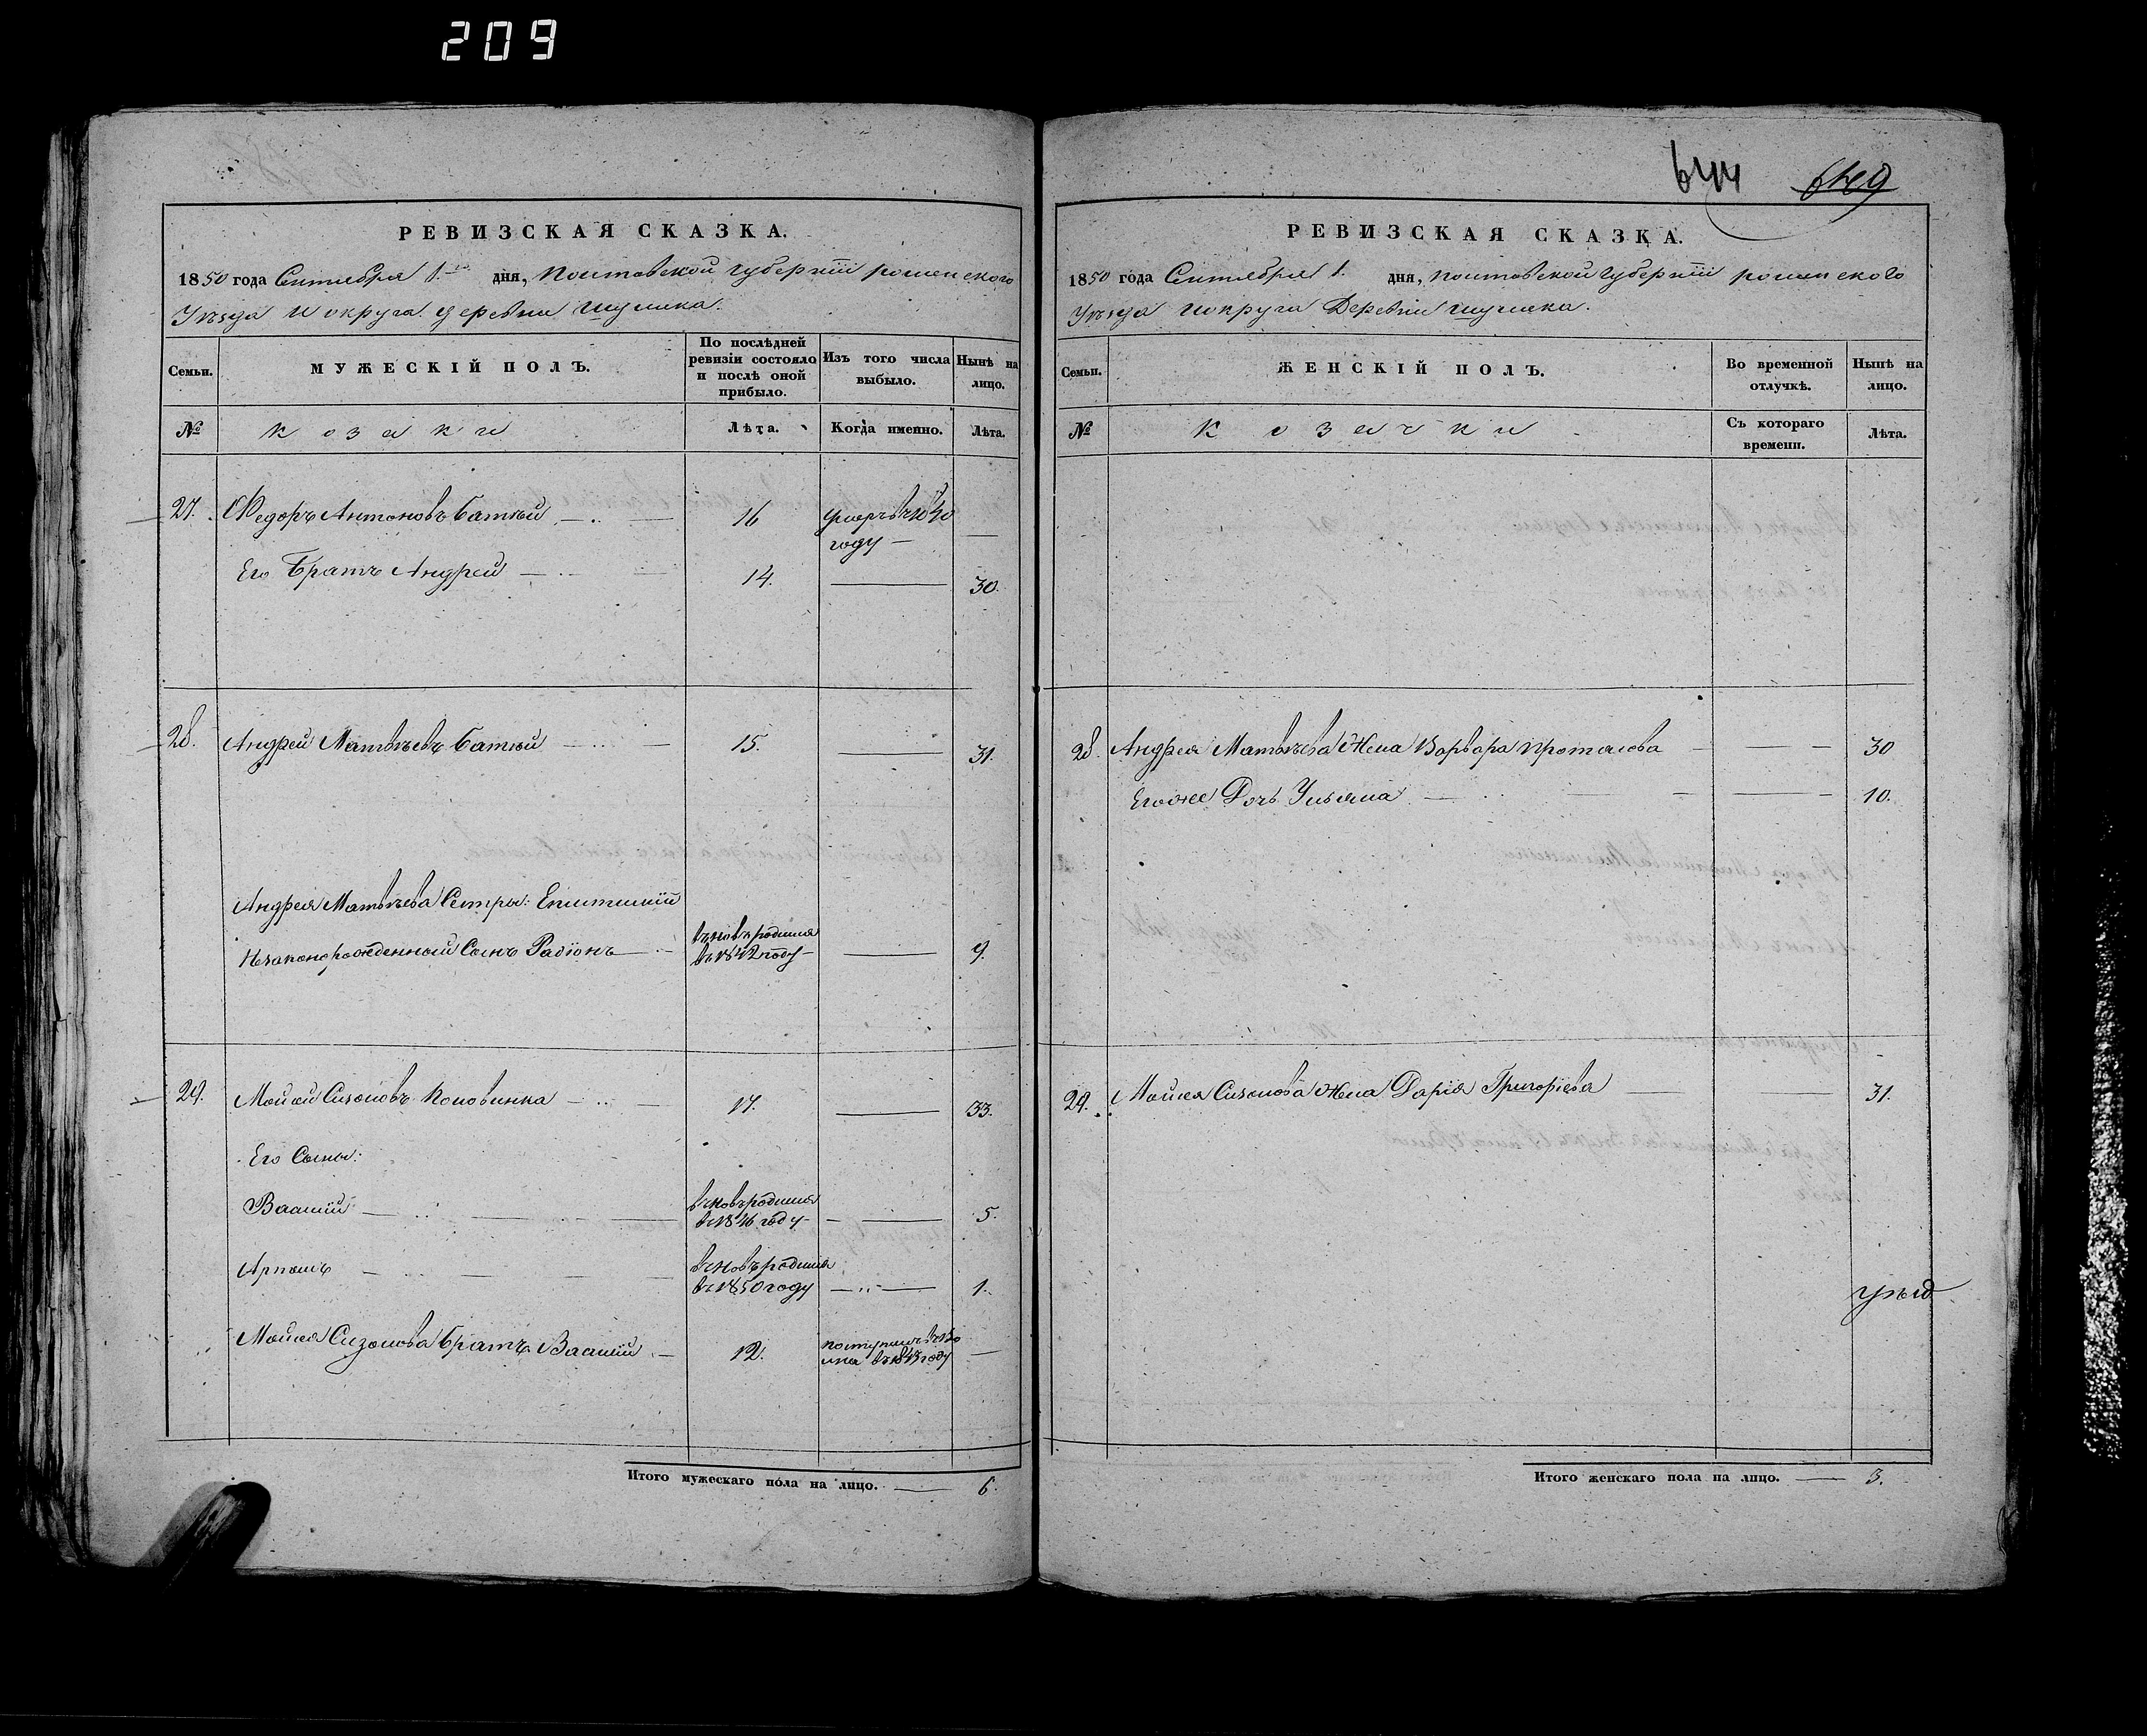 209
644 649
РЕВИЗСКАЯ СКАЗКА.
1850 года Сентября 1 дня, Полтавской губернїи роменского
Уѣзда и округа деревни
Семьи.
МУЖЕСКІЙ ПОЛЪ.
По послѣдней ревизіи состояло и послѣ оной прибыло.
Изъ того числа выбыло.
Нынѣ на лицо.
№
козаки
Лѣта.
Когда именно.
Лѣта.
27. Федоръ Антоновъ Батюй 16 умеръ въ 1840
году —
Его Братъ Андрей 14. 30.
28. Андрей Матвѣевъ Батюй 15. 31.
Андрея Матвѣева Сестры:
Незаконорожденный Сынъ Радїонъ вновь родился
въ 1842 году 9.
29. Мойсей Сизоновъ Половинка 17. 33.
Его Сыны:
Василїй вновь родился
въ 1846 году 5.
Арпомъ вновь родился
въ 1850 году 1.
Мойсея Сизонова Братъ Василїй 12.
въ 1843 году
Итого мужескаго пола на лицо. 6.
РЕВИЗСКАЯ СКАЗКА.
1850 года Сентября 1. дня, Полтавской губернїи роменского
Уѣзда и округа Деревни
Семьи.
ЖЕНСКІЙ ПОЛЪ.
Во временной отлучкѣ.
Нынѣ на лицо.
№
козачки
Съ котораго времени.
Лѣта.
28. Андрея Матвѣева Жена Варвара Проталова 30
Егоже Дочь Ульяна 10.
29. Мойсея Сизонова Жена Дарїя Григорїева 31.
Итого женскаго пола на лицо. 3.